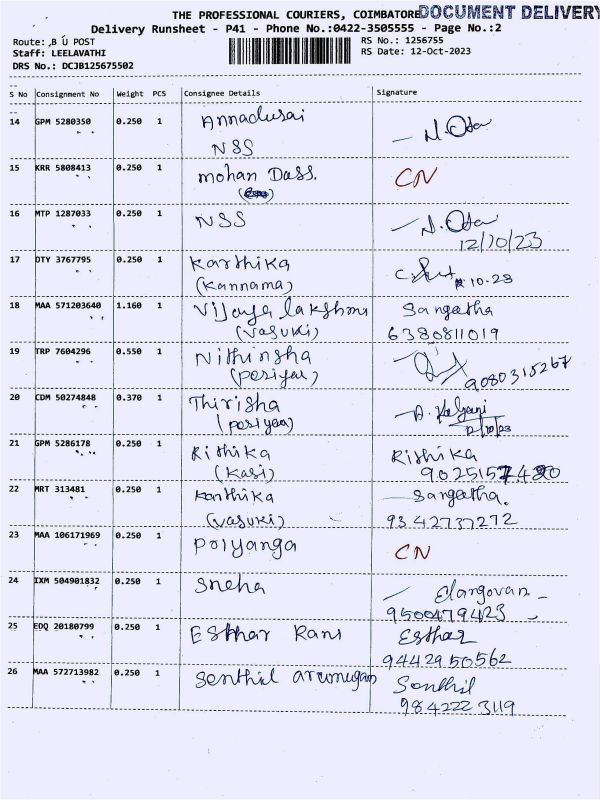 THE PROFESSIONAL COURIERS, COIMBATORE DOCUMENT DELIVERY
Delivery Runsheet - P41 - Phone No.:0422-3505555 - Page No.:2
Route: B U POST RS No.: 1256755
Staff: LEELAVATHI RS Date: 12-Oct-2023
DRS No.: DCJB125675502
S No Consignment No Weight PCS Consignee Details Signature
14 GPM 5280350 0.250 1 Annadurai
NSS
15 KRR 5808413 0.250 1 mohan Dass. CN
16 MTP 1287033 0.250 1 NSS
12/10/23
17 OTY 3767795 0.250 1 Karthika
(Kannama)
18 MAA 571203640 1.160 1 Vijaya lakshmi Sangatha
(vasuki) 6380811019
19 TRP 7604296 0.550 1 Nithinsha
(periyar) 9080315267
20 CDM 50274848 0.370 1 Thirisha
(periyar) 12/10/23
21 GPM 5286178 0.250 1 Rithika Rithika
(Kasi)
22 MRT 313481 0.250 1 Karthika Sangatha.
(vasuki) 9342737272
23 MAA 106171969 0.250 1 Priyanga CN
24 IXM 504901832 0.250 1 Sneha Elangovan
9500479423
25 EDQ 20180799 0.250 1 Esthar Rani Esthar
9442950562
26 MAA 572713982 0.250 1 Senthil arumugam Senthil
9842223119